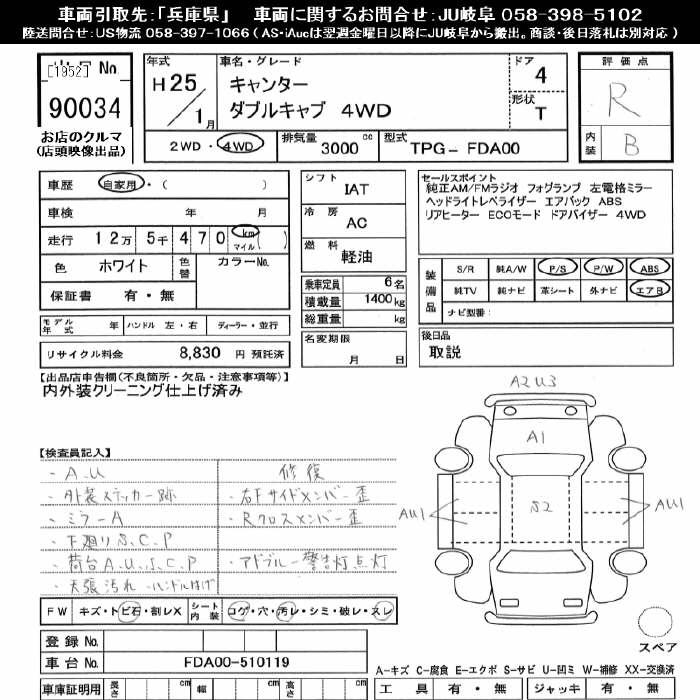 車両引取先:「兵庫県」 車両に関するお問合せ:JU岐阜 058-398-5102
陸送問合せ:US物流 058-397-1066 ( AS・iAucは翌週金曜日以降にJU岐阜から搬出。商談・後日落札は別対応 )
[1952] No
90034
お店のクルマ
(店頭映像出品)
年式
H25/1月
車名・グレード
キャンター
ダブルキャブ 4WD
ドア 4
形状 T
2WD・4WD
排気量 3000 cc
型式 TPG-FDA00
評価点
R
内装 B
車歴 自家用・( )
車検 年 月
走行 12万5千470 km マイル ( )
色 ホワイト 色替 カラーNo.
保証書 有・無
モデル年式 年 ハンドル 左・右 ディーラー・並行
リサイクル料金 8,830 円 預託済
シフト IAT
冷房 AC
燃料 軽油
乗車定員 6名
積載量 1400kg
総重量 kg
名変期限 月 日
セールスポイント
純正AM/FMラジオ フォグランプ 左電格ミラー
ヘッドライトレベライザー エアバック ABS
リアヒーター ECOモード ドアバイザー 4WD
装備品
S/R 純A/W P/S P/W ABS
純TV 純ナビ 革シート 外ナビ エアB
ナビ型番:
後日品
取説
【出品店申告欄(不良箇所・欠品・注意事項等)】
内外装クリーニング仕上げ済み
【検査員記入】
・A.U
・外装ステッカー跡
・ミラーA
・下廻りS.C.P
・荷台A.U.S.C.P
・天張汚れ ・ハンドルはげ
修復
・右Fサイドメンバー歪
・Rクロスメンバー歪
・アドブルー警告灯点灯
A2U3
A1
AU1
S2
AU1
スペア
FW キズ・トビ石・割レX シート内装 コゲ・穴・汚レ・シミ・破レ・スレ
登録No.
車台No. FDA00-510119
車庫証明用 長さ cm 幅 cm 高さ cm
A-キズ C-腐食 E-エクボ S-サビ U-凹ミ W-補修 XX-交換済
工具 有・無 ジャッキ 有・無